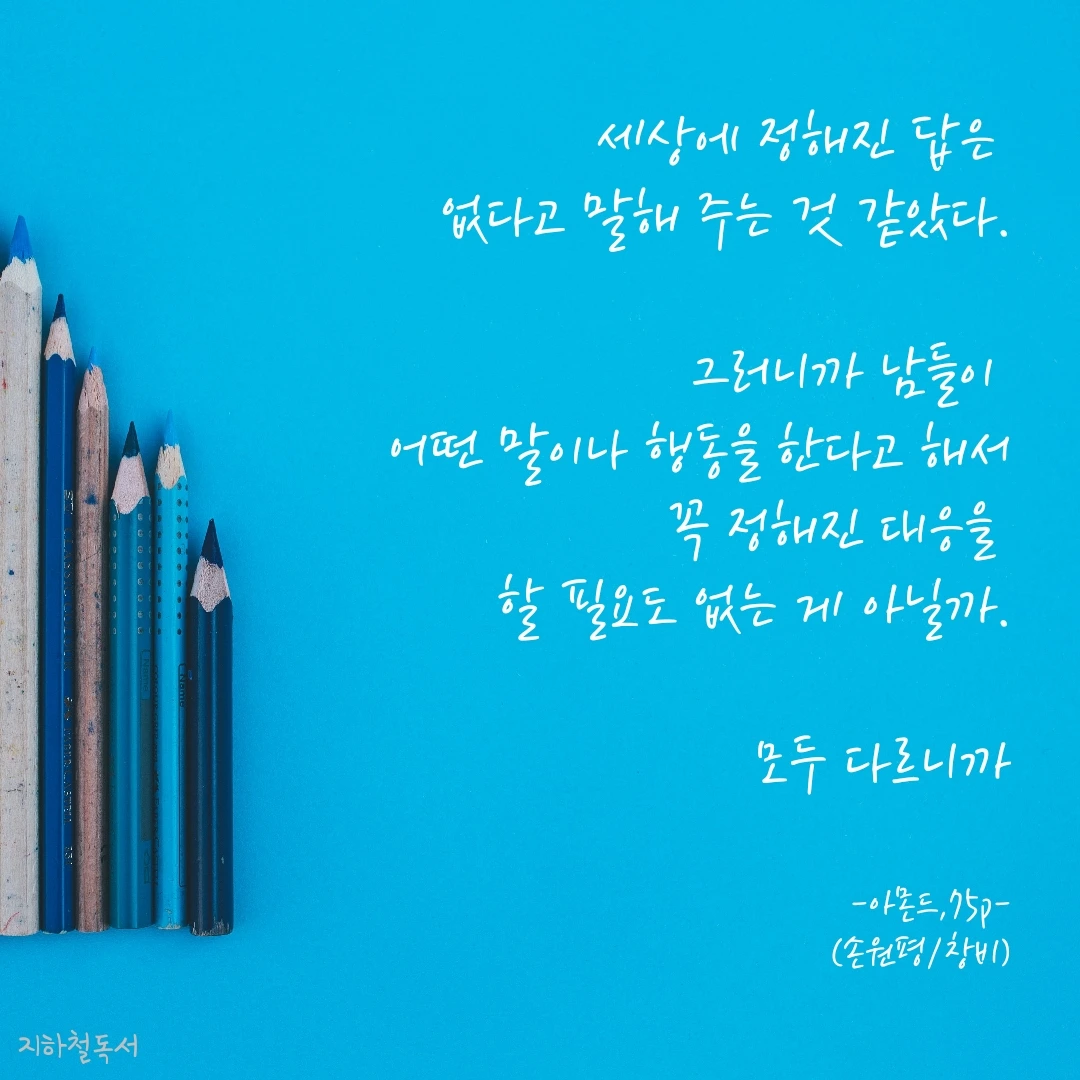 세상에 정해진 답은
없다고 말해 주는 것 같았다.
그러니까 남들이
어떤 말이나 행동을 한다고 해서
꼭 정해진 대응을
할 필요도 없는 게 아닐까.
모두 다르니까
-아몬드,75p-
(손원평/창비)
지하철독서